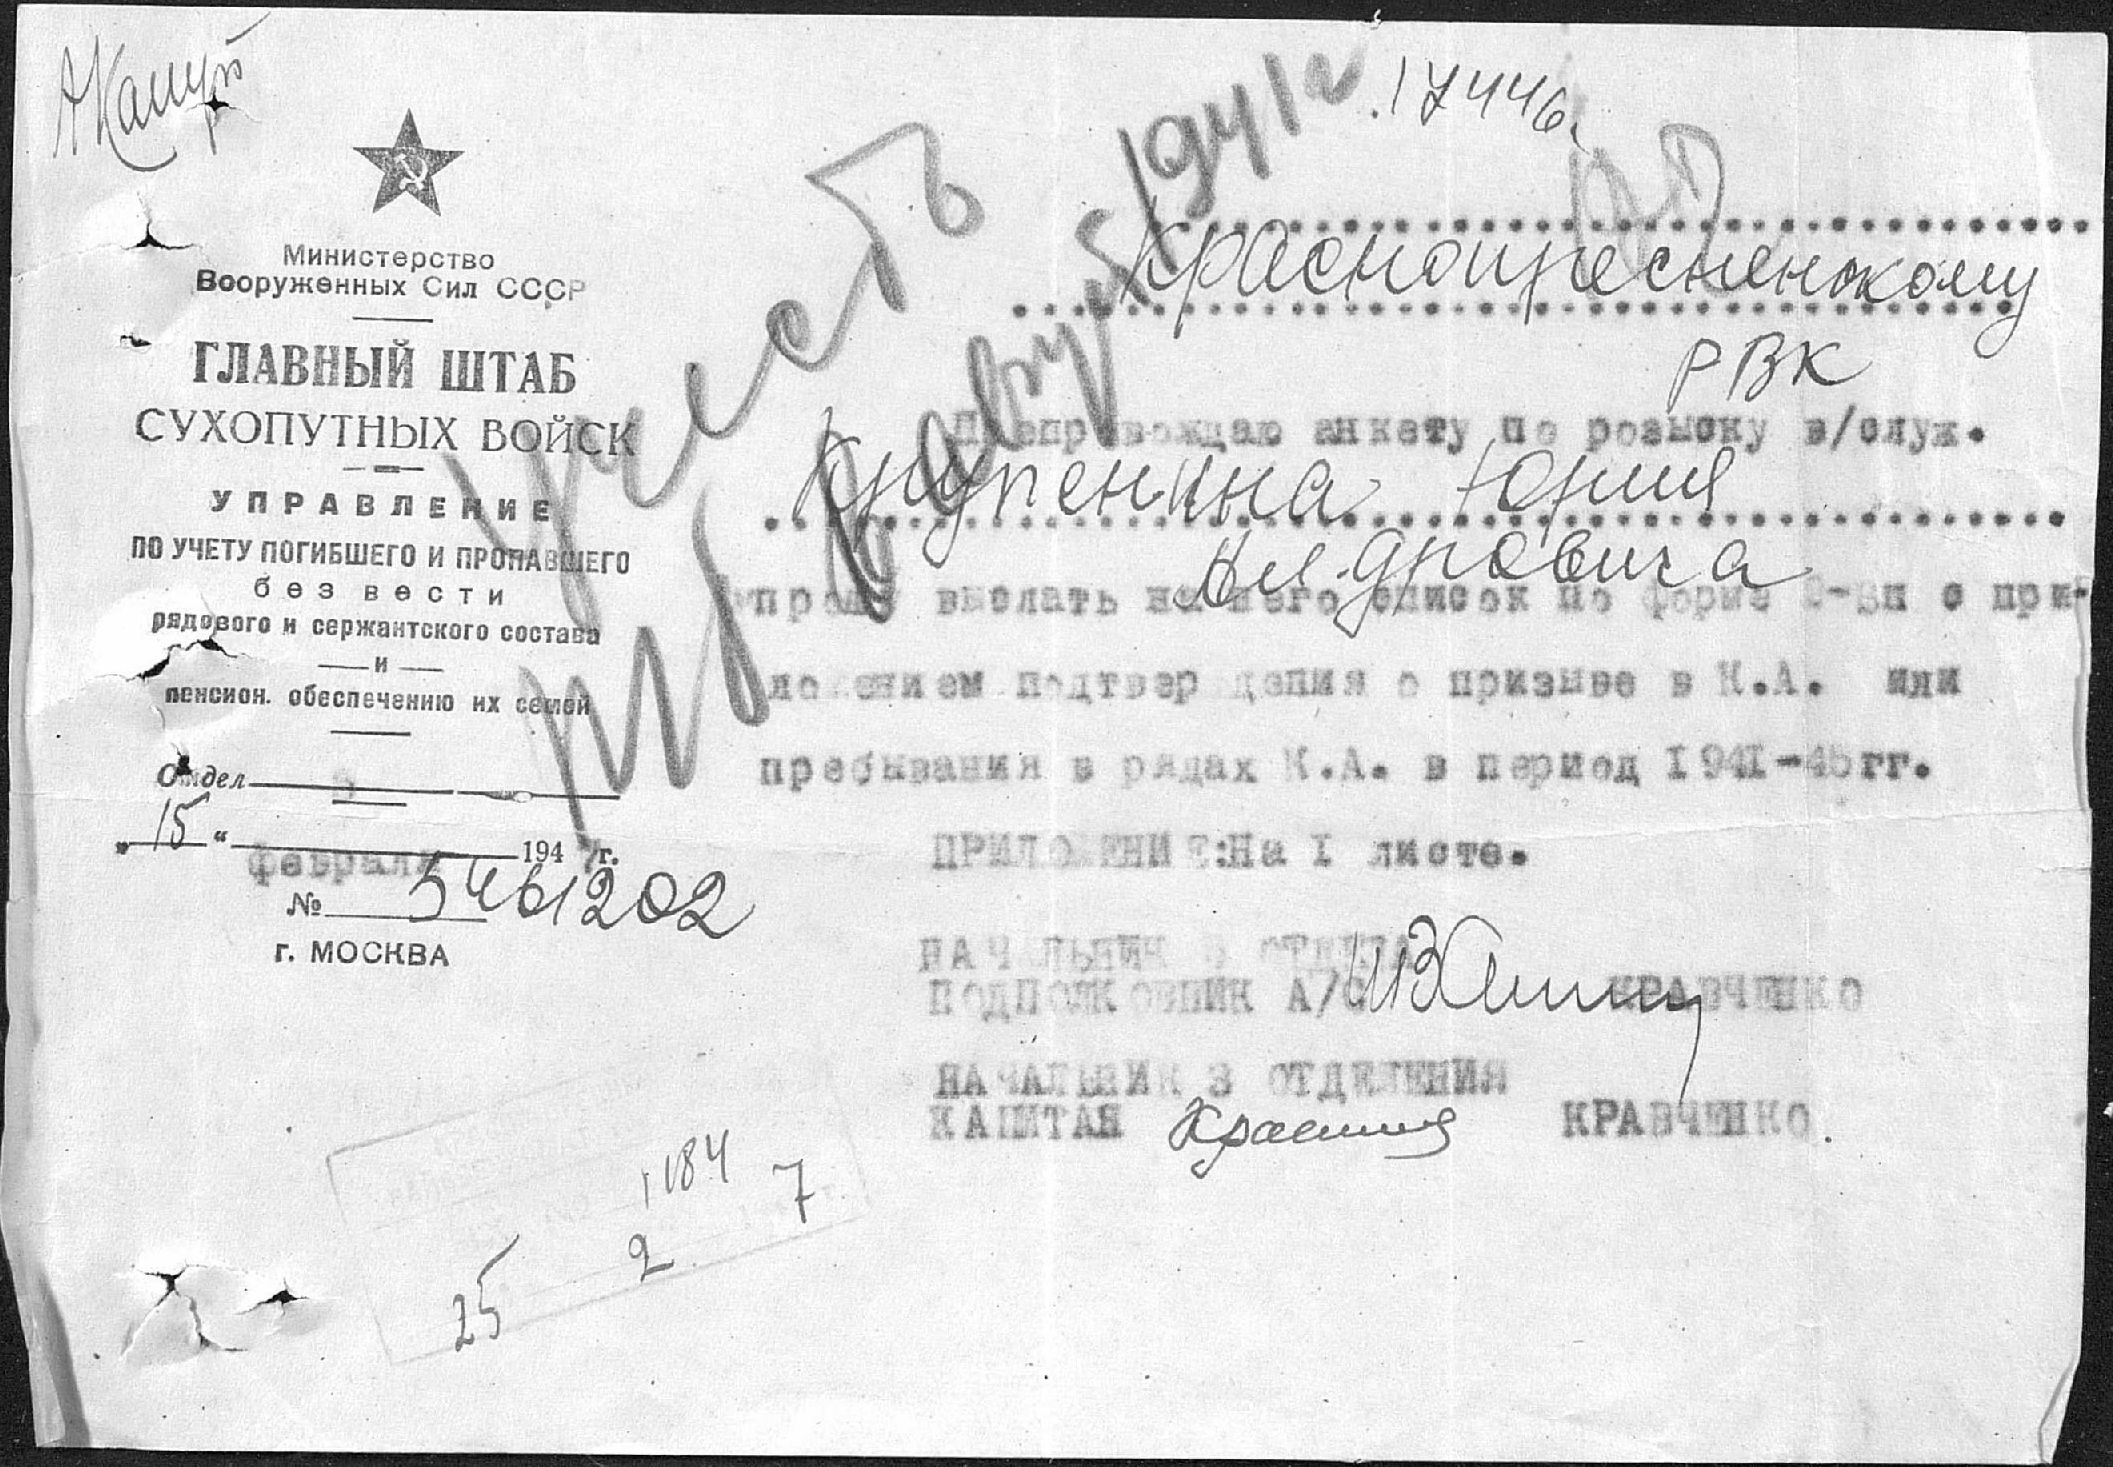 17446
Министерство
Вооруженных Сил СССР
ГЛАВНЫЙ ШТАБ
СУХОПУТНЫХ ВОЙСК
УПРАВЛЕНИЕ
ПО УЧЕТУ ПОГИБШЕГО И ПРОПАВШЕГО
без вести
рядового и сержантского состава
и
пенсион. обеспечению их семей
Отдел
„15" февраля 1947г.
№ 5461202
г. МОСКВА
Учесть
август 1941г
Краснопресненскому
РВК
Препровождаю анкету по розыску в/служ.
Крупенина Юрия
Ал-дровича
и прошу выслать на него список по форме 2-БП с при-
ложением подтверждения о призыве в К.А. или
пребывания в рядах К.А. в период 1941-45гг.
ПРИЛОЖЕНИЕ: На I листе.
НАЧАЛЬНИК 5 ОТДЕЛА
ПОДПОЛКОВНИК А/С КРАВЧЕНКО
НАЧАЛЬНИК 3 ОТДЕЛЕНИЯ
КАПИТАН КРАВЧЕНКО.
1184
25 2 7